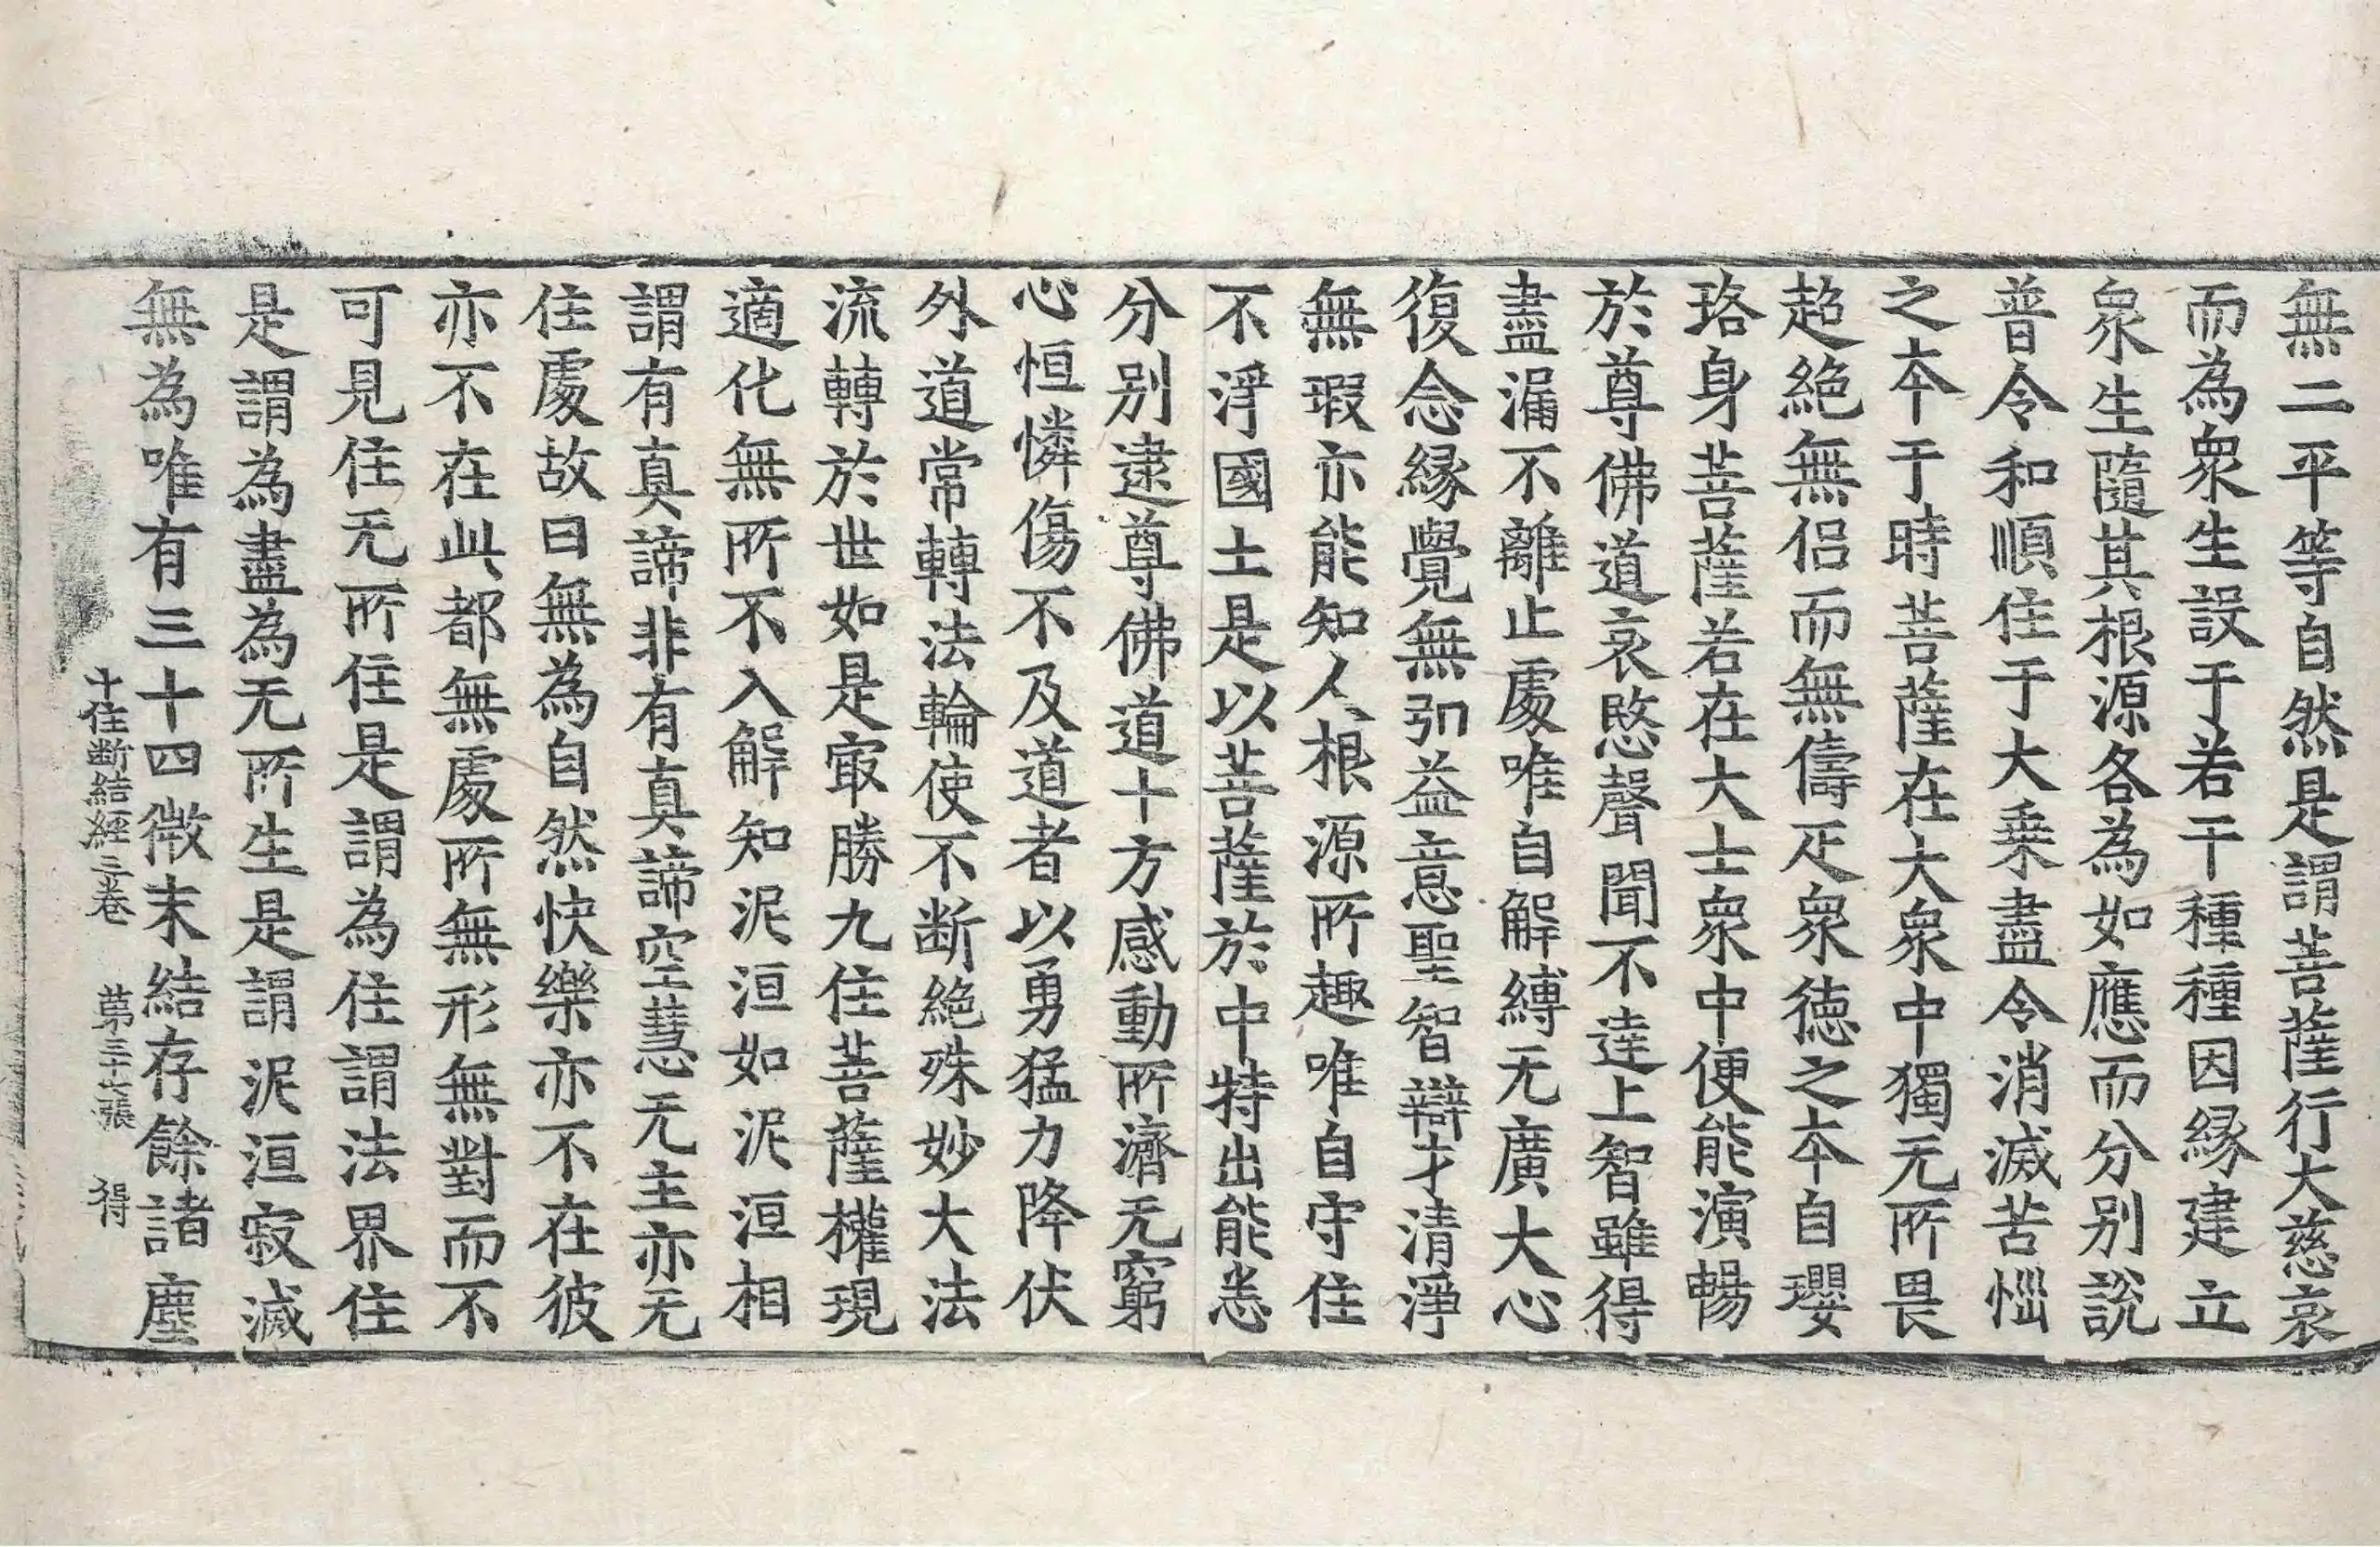 無二平等自然是謂菩薩行大慈哀
而為衆生設于若干種種因縁建立
衆生隨其根源各為如應而分別說
普令和順住于大乗盡令消滅苦惱
之本于時菩薩在大衆中獨无所畏
超絶無侣而無儔疋衆徳之本自瓔
珞身菩薩若在大士衆中便能演暢
於尊佛道哀愍聲聞不達上智雖得
盡漏不離止處唯自解縛无廣大心
復念縁覺無弘益意聖智辯才清淨
無瑕亦能知人根源所趣唯自守住
不淨國土是以菩薩於中特出能悉
分別逮尊佛道十方感動所濟无窮
心恒憐傷不及道者以勇猛力降伏
外道常轉法輪使不断絶殊妙大法
流轉於世如是㝡勝九住菩薩權現
適化無所不入解知泥洹如泥洹相
謂有真諦非有真諦空慧无主亦无
住處故曰無為自然快樂亦不在彼
亦不在此都無處所無形無對而不
可見住无所住是謂為住謂法界住
是謂為盡為无所生是謂泥洹寂滅
無為唯有三十四微末結存餘諸塵
十住断結經三卷 苐三十七張 得